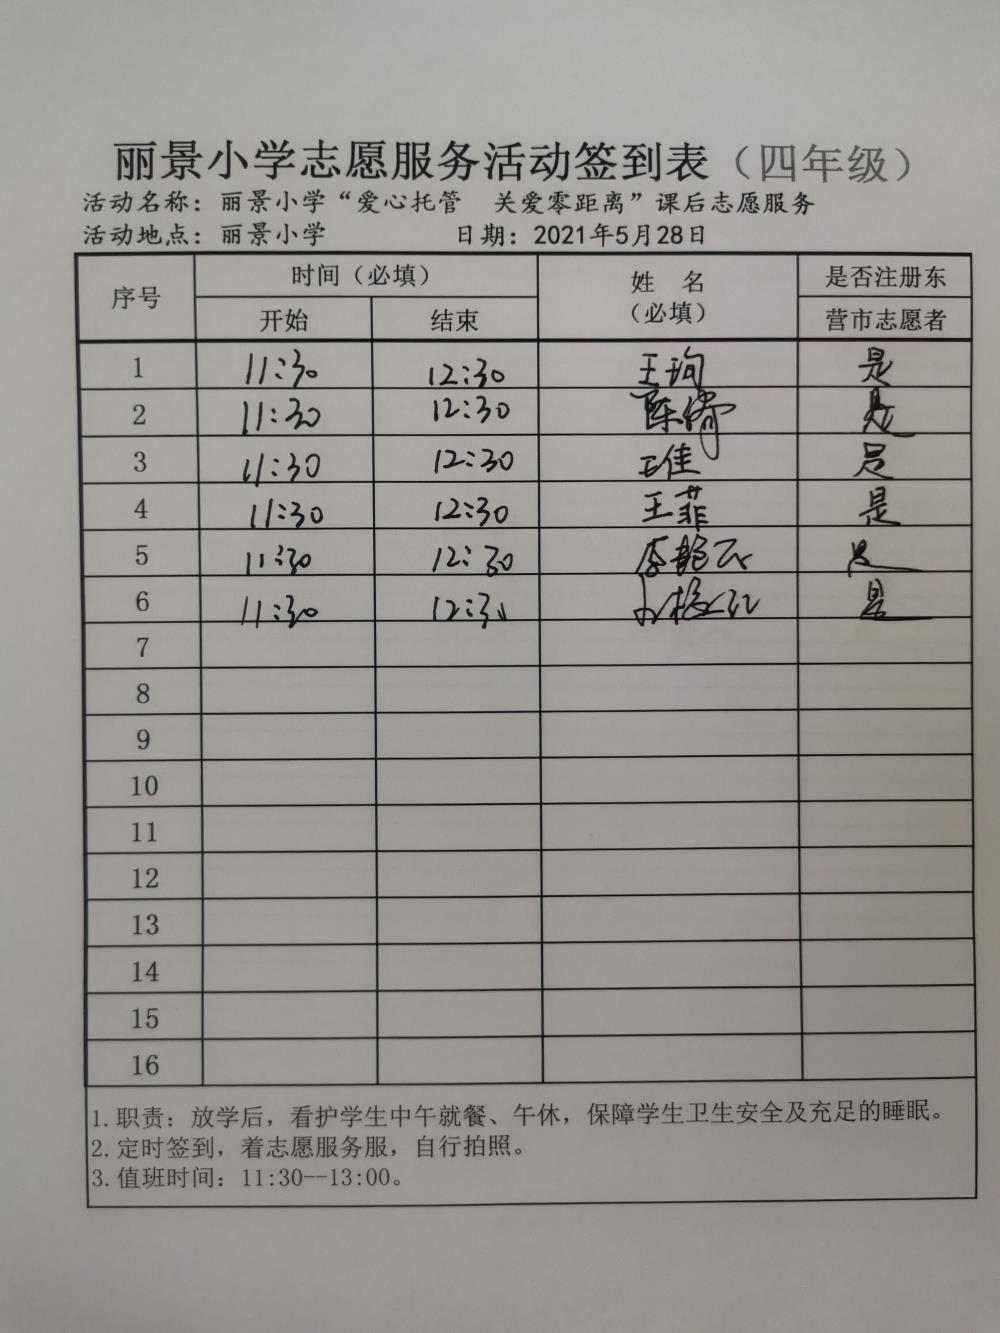 丽景小学志愿服务活动签到表（四年级）
活动名称：丽景小学“爱心托管 关爱零距离”课后志愿服务
活动地点：丽景小学 日期：2021年5月28日
序号 时间（必填） 姓 名（必填） 是否注册东营市志愿者
开始 结束
1 11:30 12:30 王珣 是
2 11:30 12:30 陈 是
3 11:30 12:30 王佳 是
4 11:30 12:30 王菲 是
5 11:30 12:30 李艳 是
6 11:30 12:30 是
7
8
9
10
11
12
13
14
15
16
1.职责：放学后，看护学生中午就餐、午休，保障学生卫生安全及充足的睡眠。
2.定时签到，着志愿服务服，自行拍照。
3.值班时间：11:30--13:00。